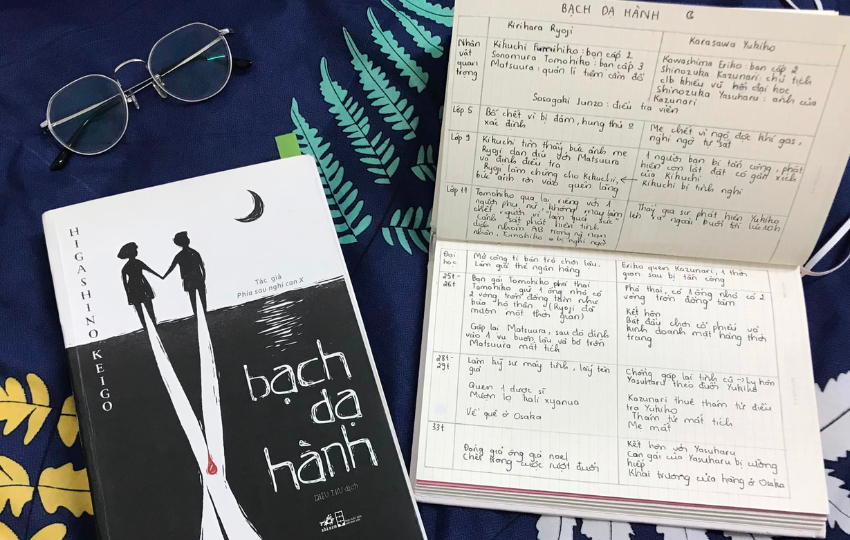 HIGASHINO KEIGO
Tác giả
Phía sau nghi can X
bạch
dạ
hành
DIỆU THƯ dịch
BẠCH DẠ HÀNH
Kirihara Ryoji
Karasawa Yukiho
Nhân
vật
quan
trọng
Kikuchi Fumihiko: bạn cấp 2
Sonomura Tomohiko: bạn cấp 3
Matsuura: quản lí tiệm cầm đồ
Kawashima Eriko: bạn cấp 2
Shinozuka Kazunari: chủ tịch
clb khiêu vũ hồi đại học
Shinozuka Yasuharu: anh của
Kazunari
Sasagaki Junzo: điều tra viên
Lớp 5
Bố chết vì bị đâm, hung thủ
xác định
Mẹ chết vì ngộ độc khí gas,
nghi ngờ tự sát
Lớp 9
Kikuchi tìm thấy bức ảnh mẹ
Ryoji dan díu với Matsuura
và định điều tra
Ryoji làm chứng cho Kikuchi,
bức ảnh rơi vào quên lãng
1 người bạn bị tấn công, phát
hiện con lật đật có gắn xích
của Kikuchi
Kikuchi bị tình nghi
Lớp 11
Tomohiko qua lại riêng với 1
người phụ nữ, không may làm
chết người vì làm quá sức
Cảnh sát phát hiện tinh
dịch nhóm AB trong tử
nhân, Tomohiko bị nghi ngờ
Thầy gia sư phát hiện Yukiho
ra ngoài buổi tối lúc 10h
Đại
học
Mở công ti bán trò chơi lậu.
Làm giả thẻ ngân hàng
Eriko quen Kazunari, 1 thời
gian sau bị tấn công
25t-
26t
Bạn gái Tomohiko phá thai
Tomohiko giữ 1 ống nhỏ có
2 vòng tròn đồng tâm như
bùa hộ thân (Ryoji đã
mượn một thời gian)
Gặp lại Matsuura, sau đó dính
vào 1 vụ buôn lậu và bỏ trốn
Matsuura mất tích
Phá thai, có 1 ống nhỏ có 2
vòng tròn đồng tâm
Kết hôn
Bắt đầu chơi cổ phiếu và
kinh doanh mặt hàng thời
trang
28t-
29t
Làm kỹ sư máy tính, lấy tên
giả
Quen 1 dược sĩ
Mượn lọ kali xyanua
Về quê ở Osaka
Chồng gặp lại tình cũ -> ly hôn
Yasuharu theo đuổi Yukiho
Kazunari thuê thám tử điều
tra Yukiho
Thám tử mất tích
Mẹ mất
33t
Đóng giả ông già noel
Chết trong cuộc rượt đuổi
Kết hôn với Yasuharu
Con gái của Yasuharu bị cưỡng
hiếp
Khai trương cửa hàng ở Osaka